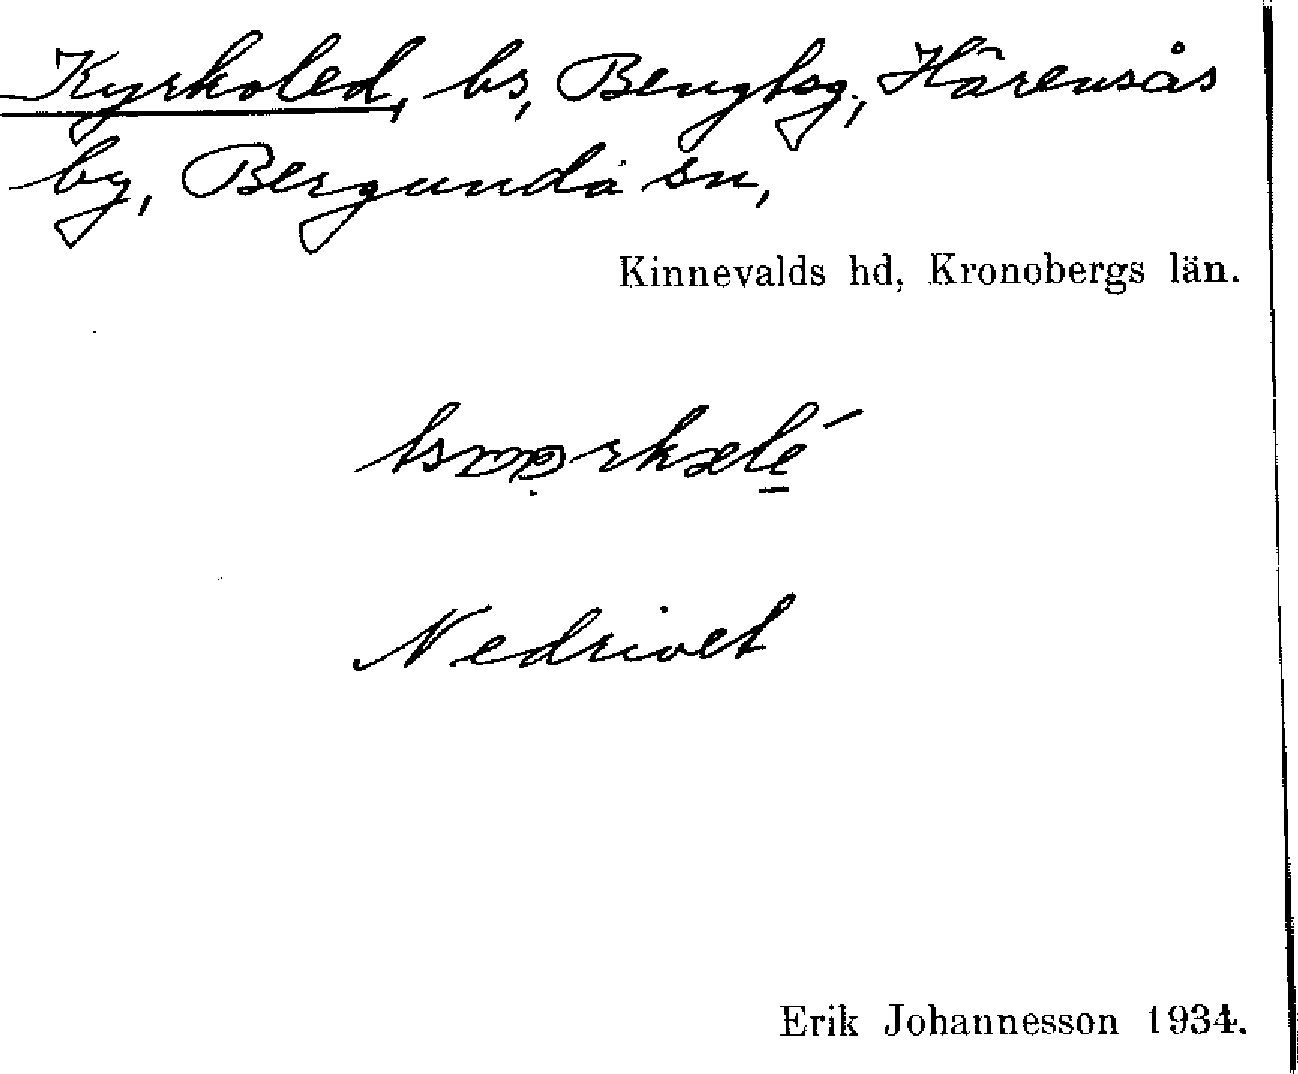 Kyrkoled, bs, Bengtsg., Härensås
by, Bergunda sn,
Kinnevalds hd, Kronobergs län.
Nedrivet
Erik Johannesson 1934.